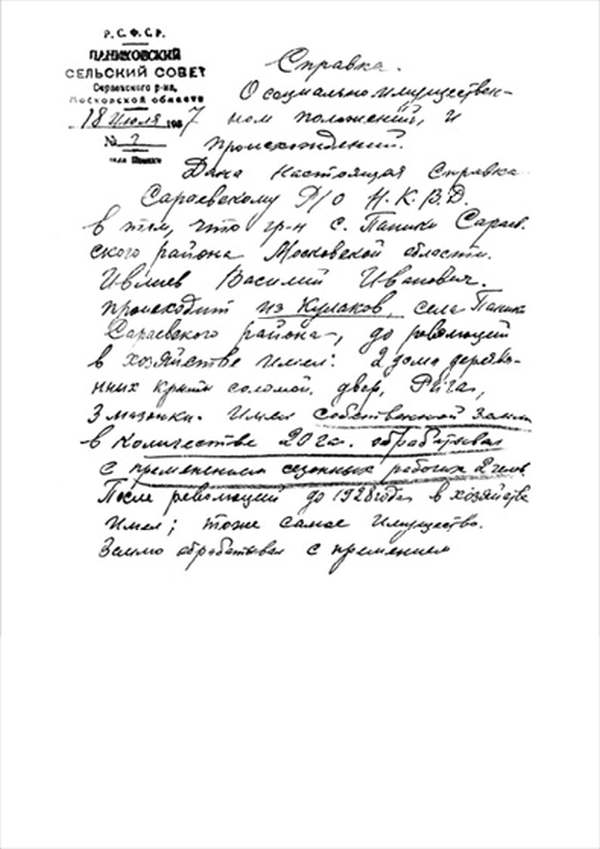 Р.С.Ф.С.Р.
ПАНИКОВСКИЙ
СЕЛЬСКИЙ СОВЕТ
Сараевского р-на,
Московской области
18 Июля 1937
№ 2
село Паники
Справка.
О социально имуществен-
ном положений, и
происхождений.
Дана настоящая Справка
Сараевскому Р/о Н.К.В.Д.
в том, что гр-н с. Паники Сараев-
ского района Московской области.
Ивлиев Василий Иванович.
происходит из Кулаков, села Паник
Сараевского района, до революций
в хозяйстве имел: 2 дома деревя-
нных крыты соломой, двор, Рига,
3 мазанки. Имел собственной земли
в количестве 20 га. обрабатывал
с пременением сезонных рабочих 2 чел.
После революций до 1928 года в хозяйстве
имел; тоже самое имущество.
Землю обрабатывал с пременением